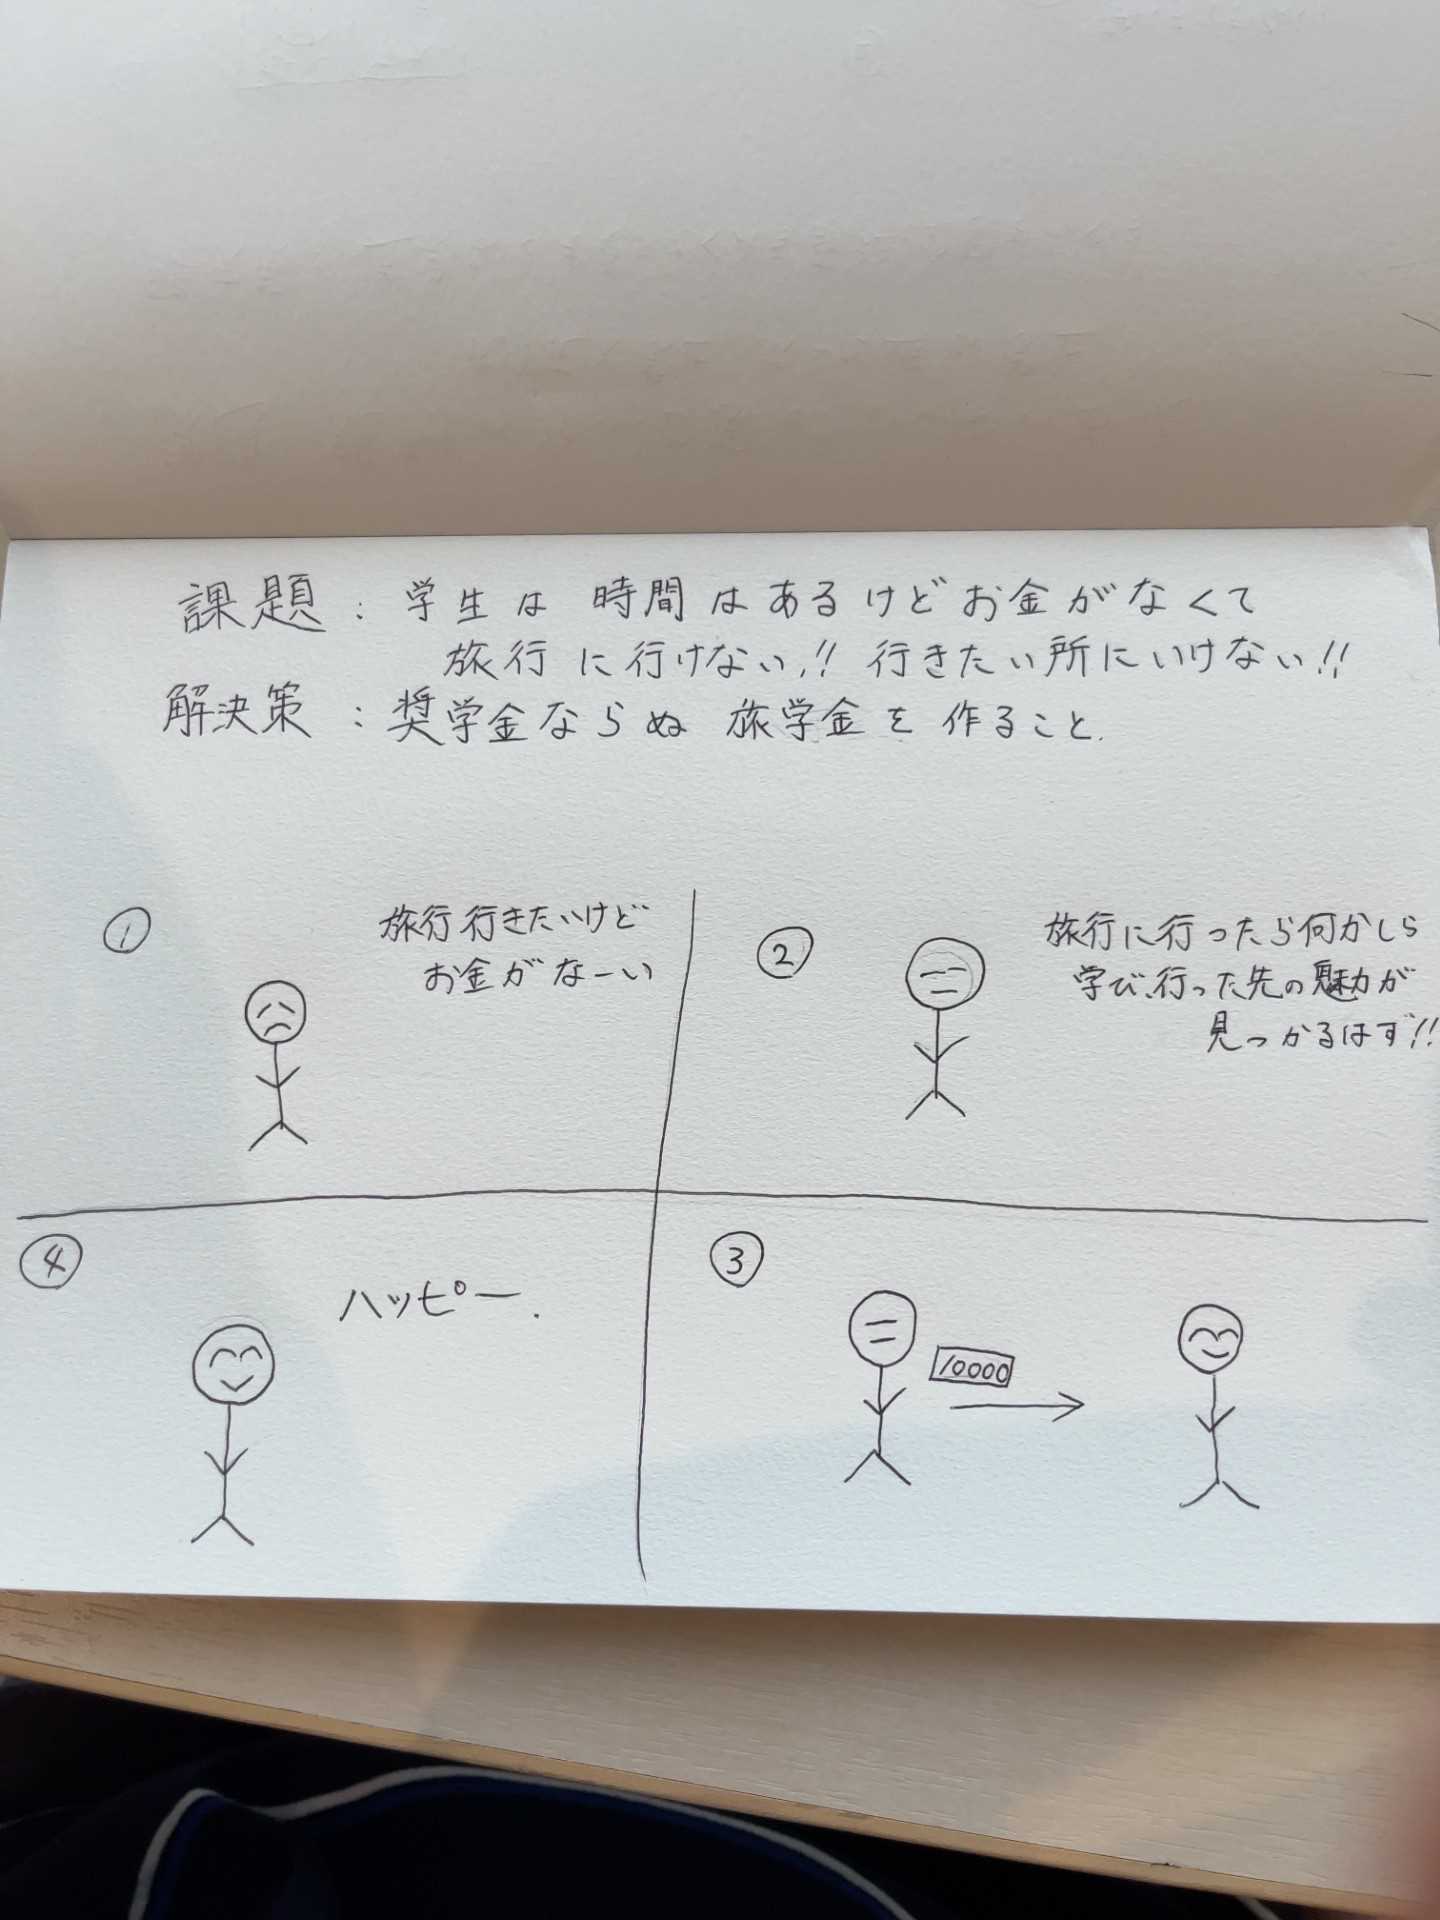 課題：学生は時間はあるけどお金がなくて
旅行に行けない!! 行きたい所にいけない!!
解決策：奨学金ならぬ旅学金を作ること.
①
旅行行きたいけど
お金がなーい
②
旅行に行ったら何かしら
学び、行った先の魅力が
見つかるはず!!
③
10000
④
ハッピー.